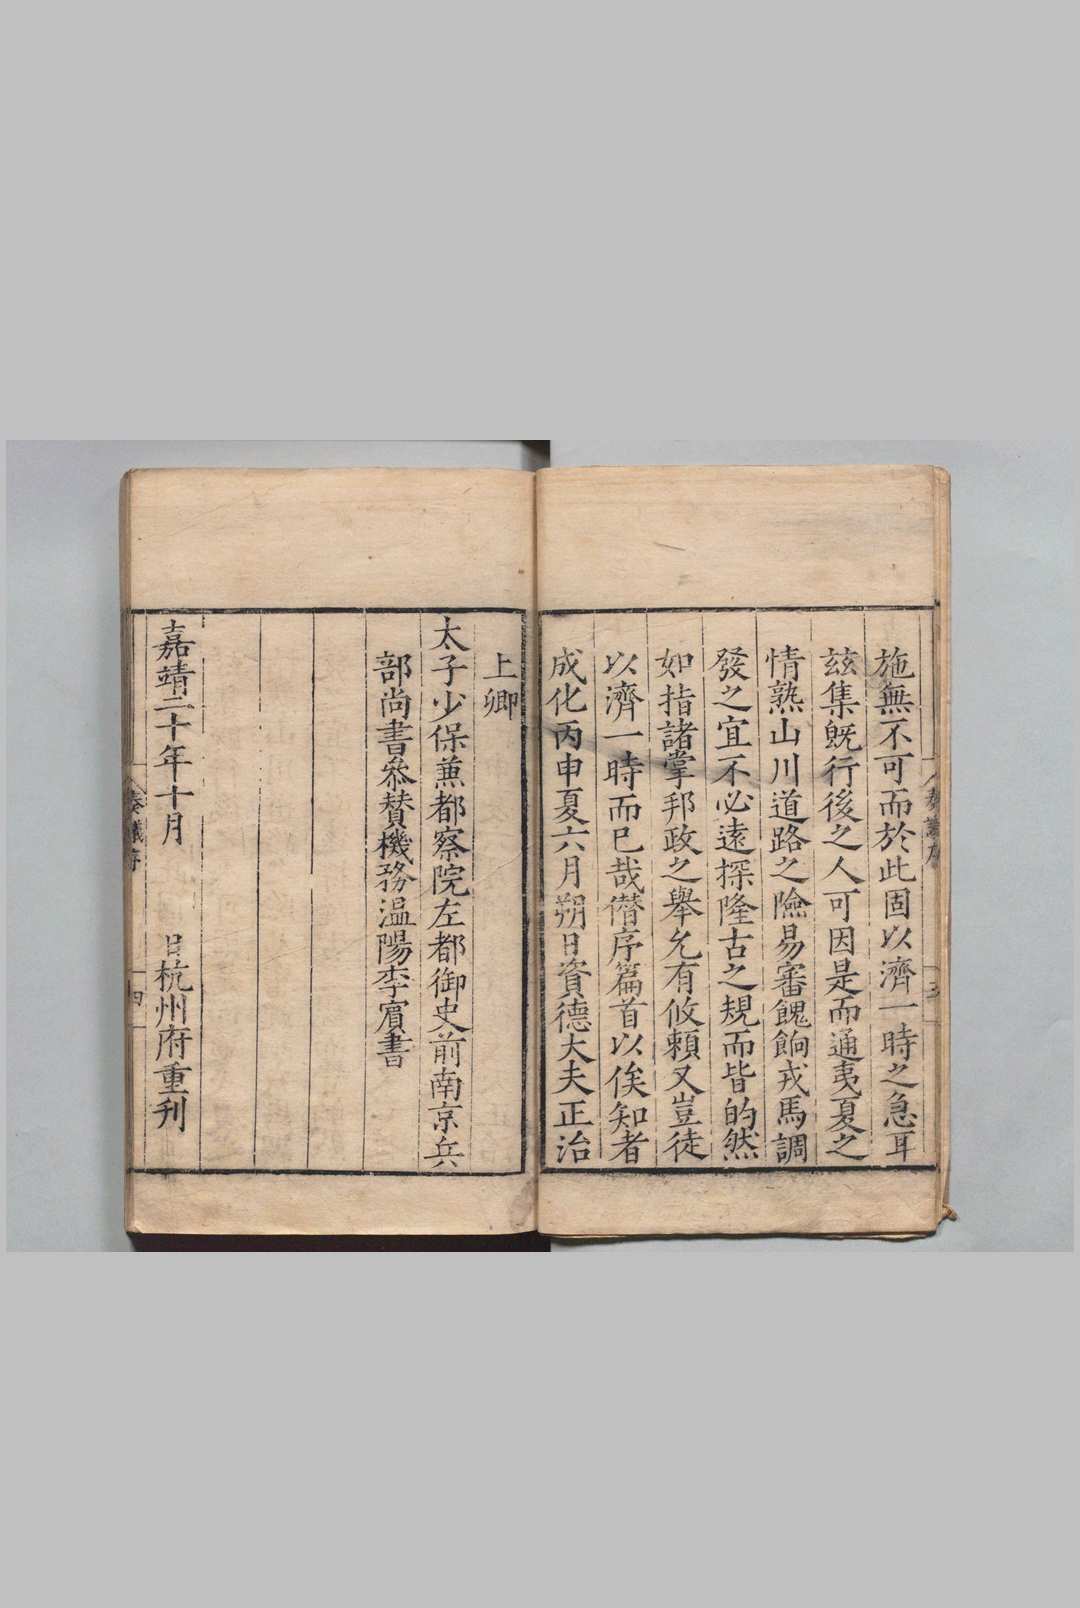 施無不可而於此固以濟一時之急耳
茲集旣行後之人可因是而通夷夏之
情熟山川道路之險易審餽餉戎馬調
發之宜不必遠探隆古之規而皆的然
如指諸掌邦政之舉允有攸賴又豈徒
以濟一時而已哉僭序篇首以俟知者
成化丙申夏六月朔日資德大夫正治
上卿
太子少保蒹都察院左都御史前南京兵
部尚書叅賛機務溫陽李賓書
嘉靖二十年十月 日杭州府重刋
奏議序
四